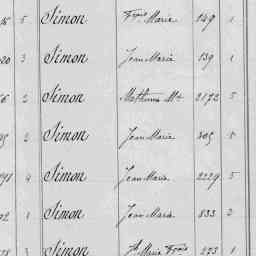 5 Simon Fçois Marie 149 1
20 3 Simon Jean Marie 139 1
2 Simon Mathurin Mie 2172 5
2 Simon Jean Marie 305 5
4 Simon Jean Marie 2229 5
1 Simon Jean Marie 833 2
3 Simon Jh Marie Fçois 273 1